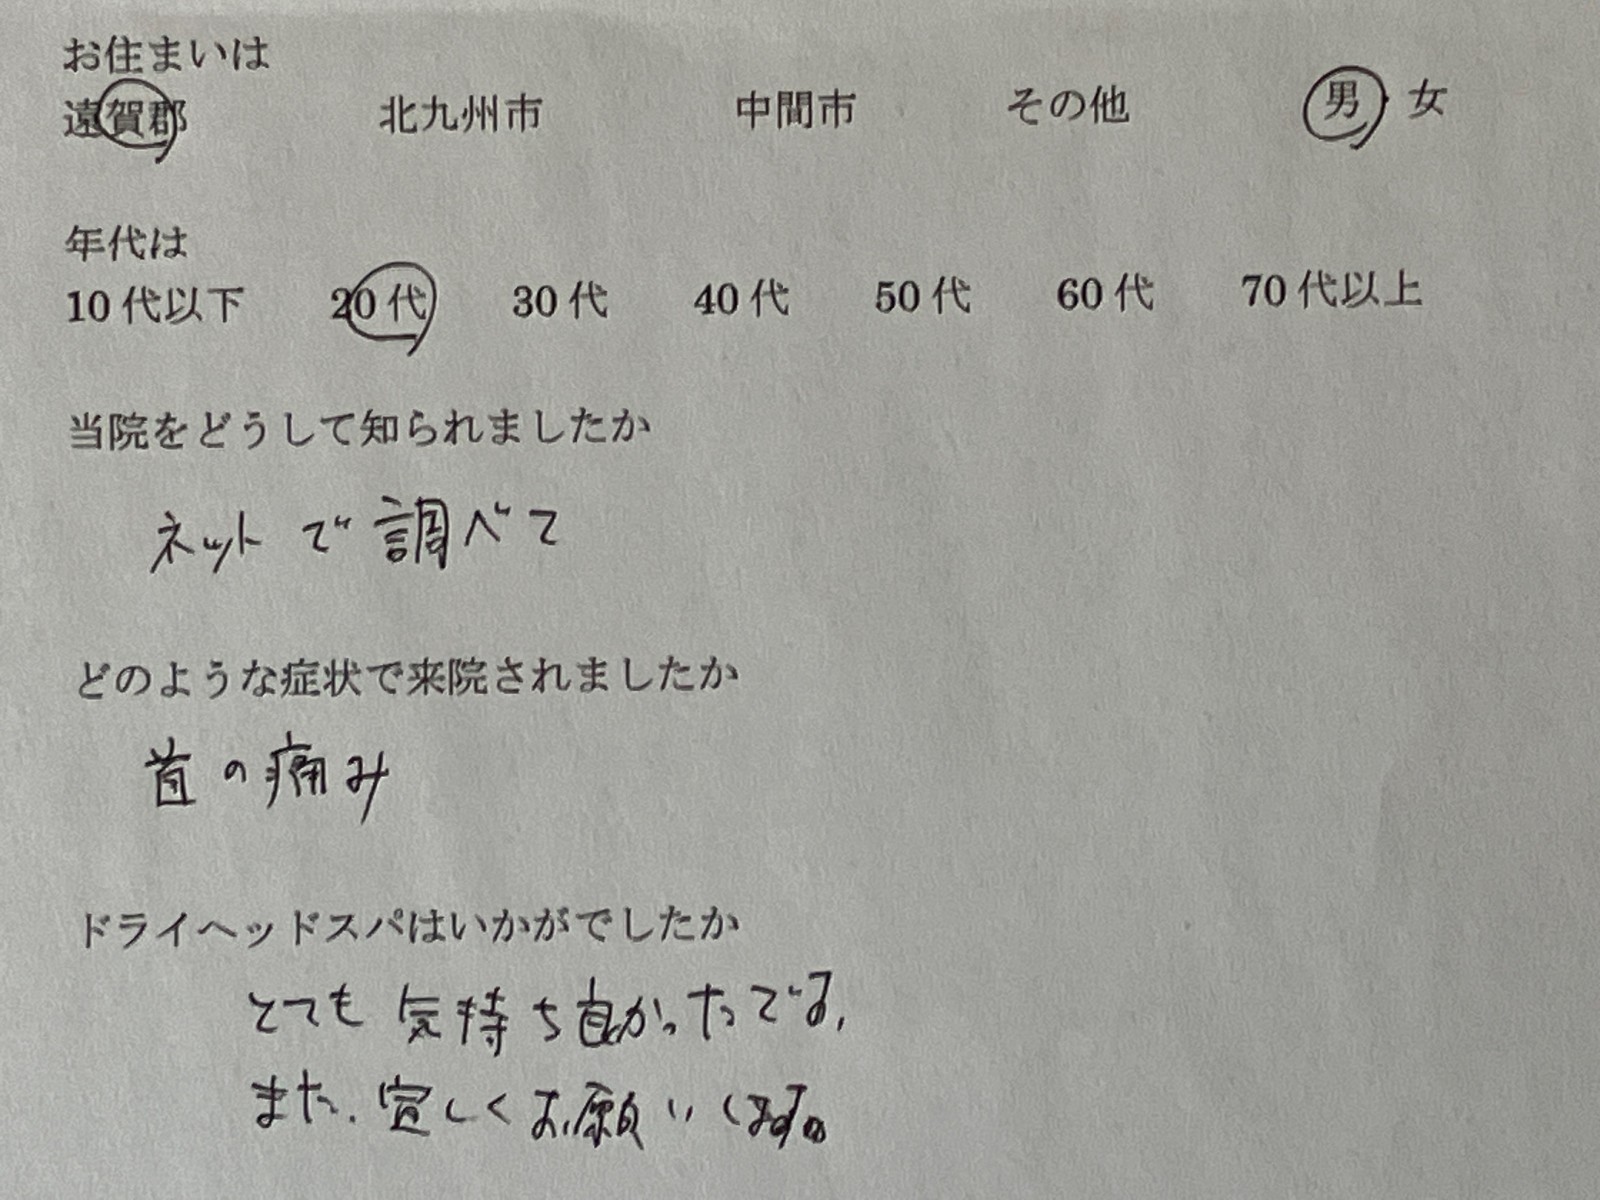 お住まいは
遠賀郡 北九州市 中間市 その他 男・女
年代は
10代以下 20代 30代 40代 50代 60代 70代以上
当院をどうして知られましたか
ネットで調べて
どのような症状で来院されましたか
首の痛み
ドライヘッドスパはいかがでしたか
とても気持ち良かったです。
また、宜しくお願いします。